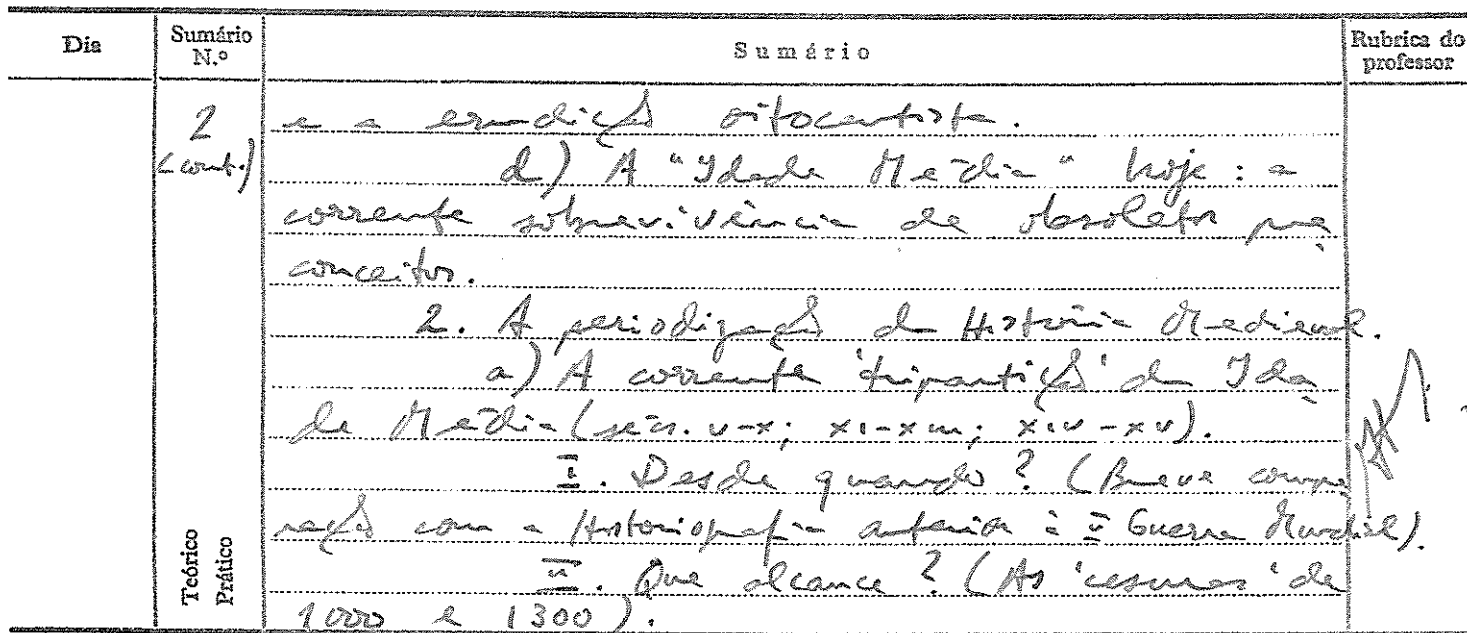 Dia
Sumário N.º
Sumário
Rubrica do professor
2 e a erudição oitocentista.
(cont.) d) A "Idade Média" hoje: a
corrente sobrevivência de obsoletos pre
conceitos.
2. A periodização da História Medieval.
a) A corrente 'tripartição' da Ida
de Média (sécs. V-X; XI-XIII; XIV-XV).
I. Desde quando? (Breve compa
ração com a Historiografia anterior à II Guerra Mundial).
II. Que alcance? (As 'cesuras' de
1000 e 1300).
Teórico
Prático